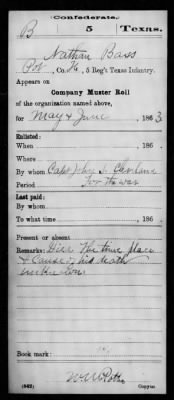 Confederate.
B 5 Texas.
Nathan Bass
Pvt, Co. H, 5 Reg't Texas Infantry.
Appears on
Company Muster Roll
of the organization named above,
for May & June, 1863
Enlisted:
When , 186
Where
By whom Capt John S. Cleveland
Period for the war
Last paid:
By whom
To what time , 186
Present or absent
Remarks: Died The time place
& Cause of his death
unknown
Book mark:
(642) Copyist.